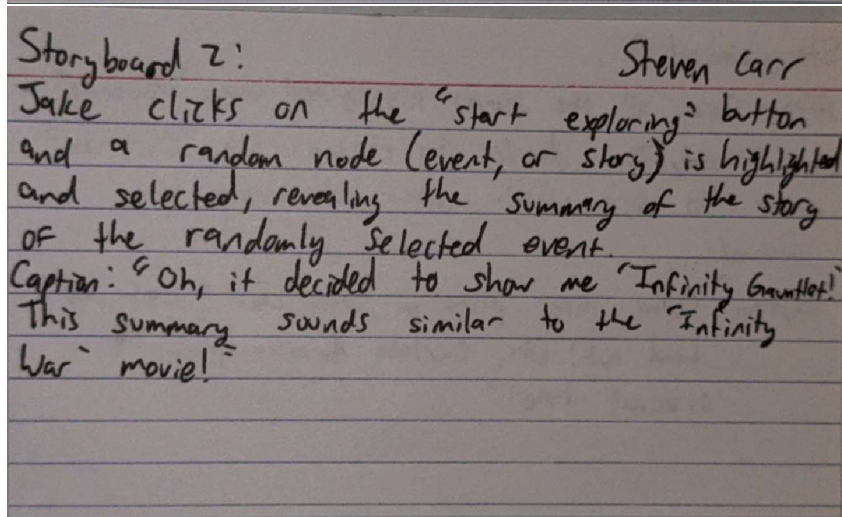 Storyboard 2: Steven Carr
Jake clicks on the "start exploring" button
and a random node (event, or story) is highlighted
and selected, revealing the summary of the story
of the randomly selected event.
Caption: "Oh, it decided to show me "Infinity Gauntlet!"
This summary sounds similar to the "Infinity
War" movie!"